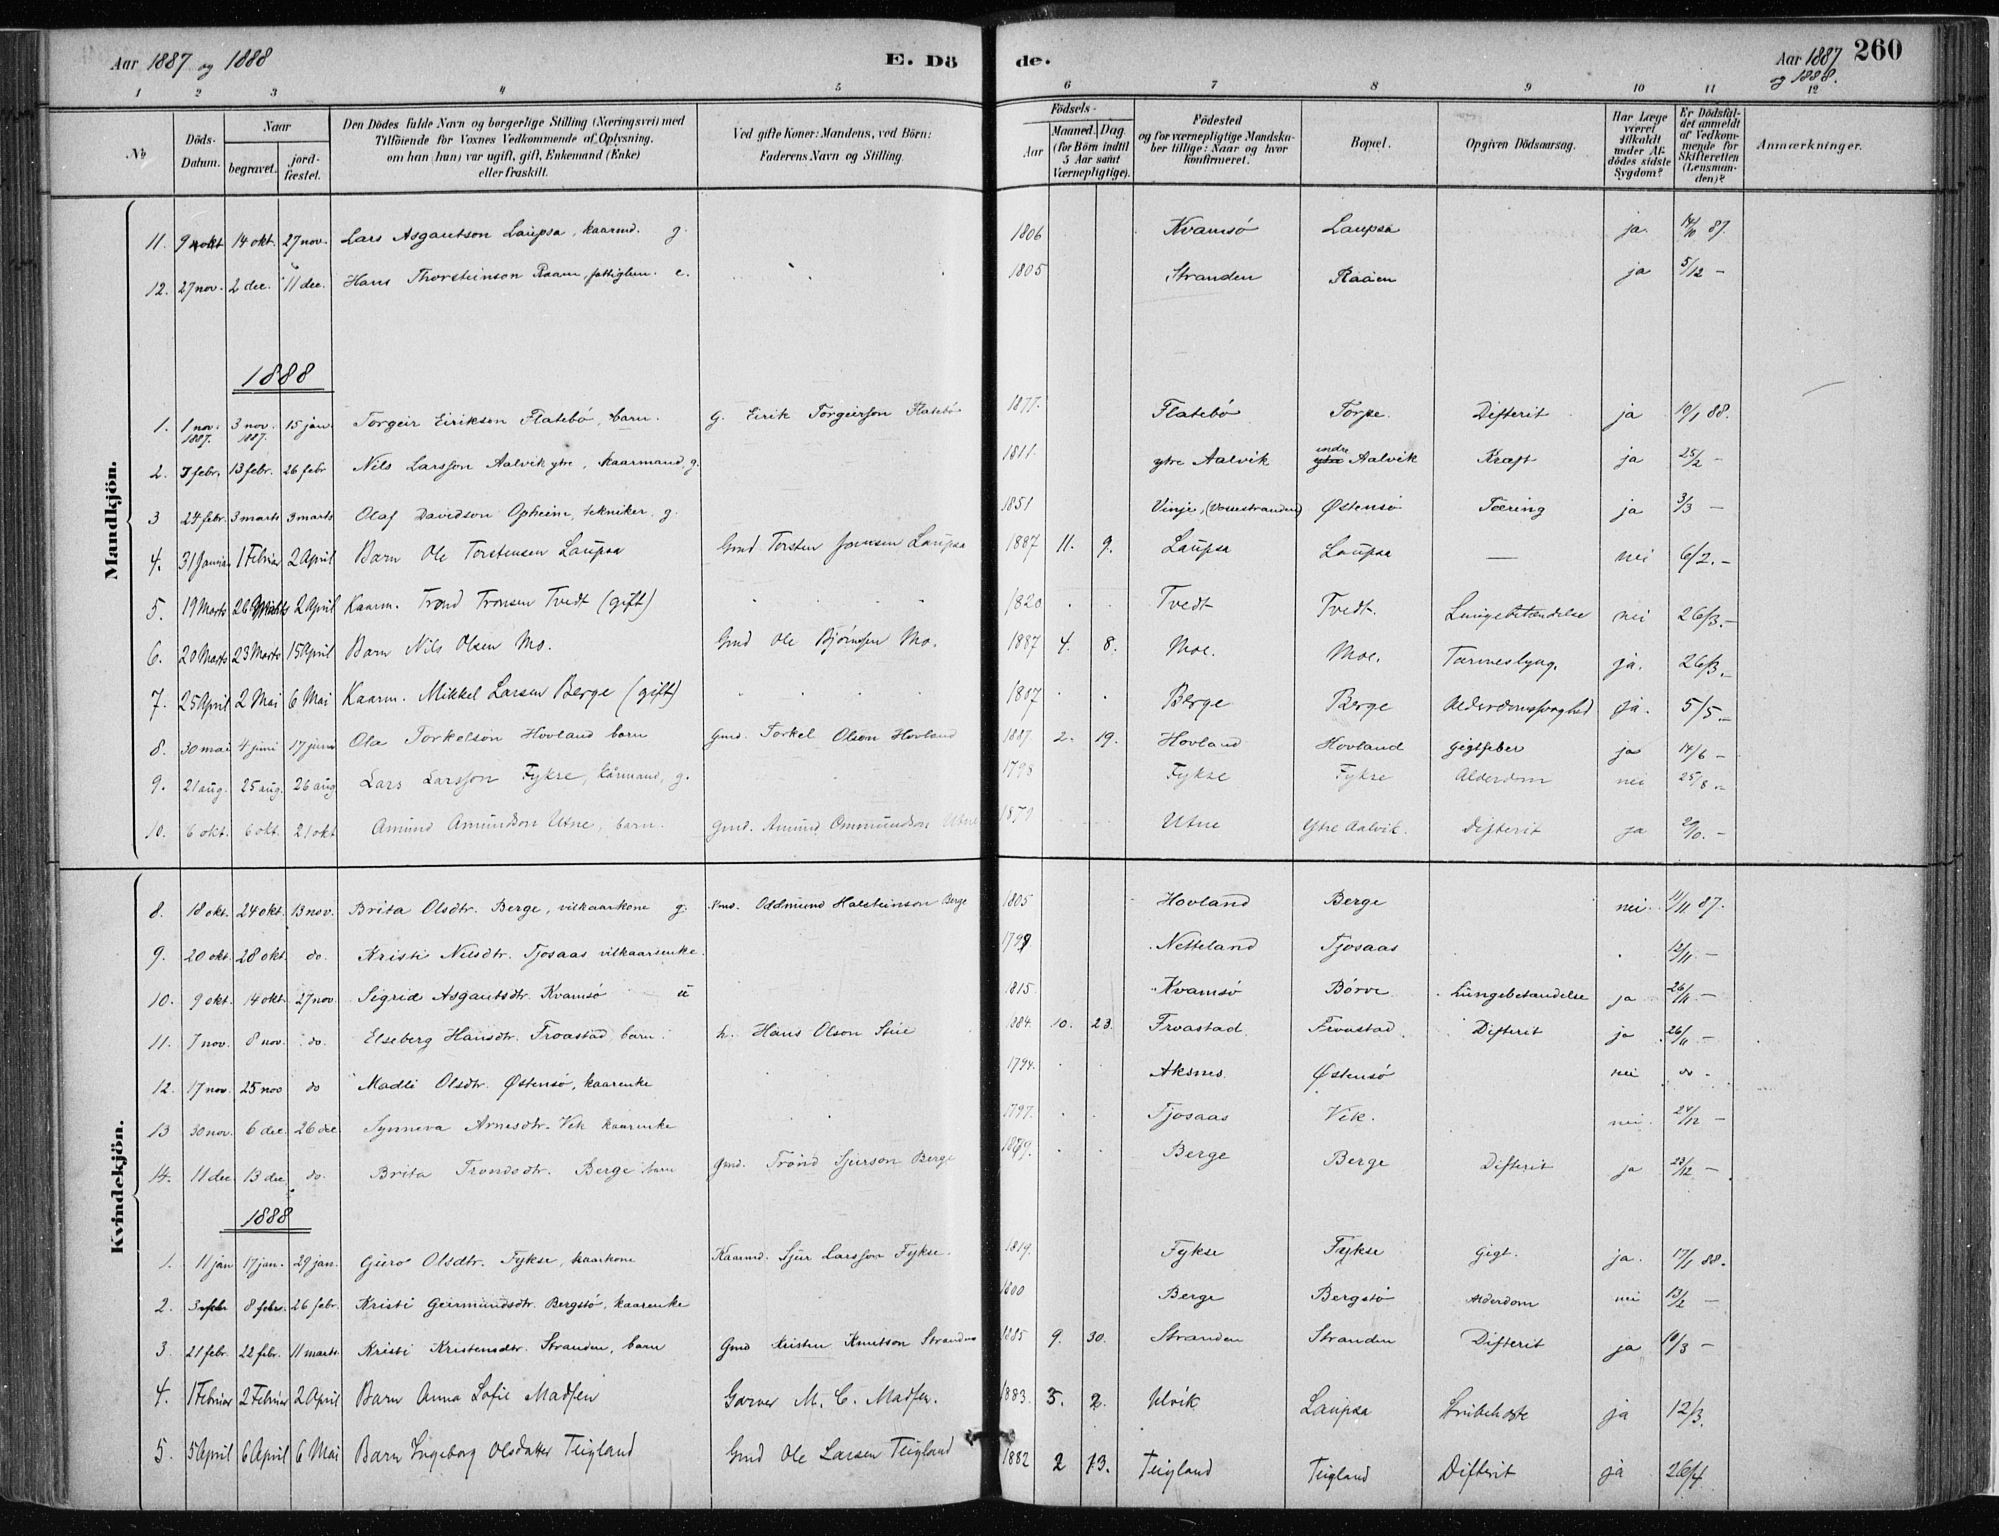 Aar 1887 og 1888
E. Dö de.
Aar 1887 og 1888.
260
1 2 3 4 5 6 7 8 9 10 11 12
No
Döds-Datum.
Naar
begravet. jord-fæstet.
Den Dödes fulde Navn og borgerlige Stilling (Næringsvei) med Tilföiende for Voxnes Vedkommende af Oplysning, om han (hun) var ugift, gift, Enkemand (Enke) eller fraskilt.
Ved gifte Koner: Mandens, ved Börn: Faderens Navn og Stilling.
Födsels-
Aar Maaned. Dag. (for Börn indtil 5 Aar samt Værnepligtige).
Födested og for værnepligtige Mandskaber tillige: Naar og hvor konfirmeret.
Bopæl.
Opgiven Dödsaarsag.
Har Læge været tilkaldt under Afdödes sidste Sygdom?
Er Dödsfaldet anmeldt af Vedkommende for Skifteretten (Lensmanden)?
Anmærkninger.
Mandkjön.
11. 9 okt 14 okt. 27 nov. Lars Asgautson Laupsa, kaarmd. g. 1806 Kvamsö Laupsa ja. 14/10 87.
12. 27 nov. 2 dec. 11 dec. Hans Thorsteinson Raaen, fattiglem. e. 1805 Stranden Raaen ja 5/12 -
1888
1. 1 nov. 1887. 3 nov. 1887. 15 jan. Torgeir Eirikson Flatebö, barn. g. Eirik Torgeirson Flatebö 1877. Flatebö Torpe Difterit ja 10/1 88.
2. 7 febr. 13 febr. 26 febr Nils Larsson Aalvik ytre, kaarmand, g. 1811 ytre Aalvik indre Aalvik Kræft ja 25/2 -
3 24 febr. 3 marts 3 marts Olaf Davidson Opheim, tekniker, g. 1851 Vinje, (Vossestranden) Østensö Tæring ja 3/3 -
4. 31 Januar 1 Februar 2 April Barn Ole Torstensen Laupsa Gmd. Torsten Laupsa 1887 11. 9. Laupsa Laupsa — nei 6/2. -
5. 19 Marts 26 Marts 2 April Kaarm. Trond Tronsen Tvedt (gift) 1820 Tvedt Tvedt. Lungebetændelse nei 26/3. -
6. 20 Marts 23 Marts 15 April Barn Nils Olsen Mo. Gmd Ole Bjørnsen Mo. 1887 4. 8. Moe. Moe. ja. 26/3. -
7. 25 April 2 Mai 6 Mai Kaarm. Mikkel Larsen Berge (gift) 1807 Berge Berge Alderdomssvaghed ja. 5/5. -
8. 30 mai 4 juni 17 juni Ola Torkelson Hovland barn Gmd. Torkel Olson Hovland 1887 2. 19. Hovland Hovland Gigtfeber ja 14/6 -
9. 21 aug. 25 aug. 26 aug Lars Larsson Fykse, kårmand, g. 1798 Fykse Fykse Alderdom nei 25/8. -
10. 6 okt. 6 okt. 21 okt Amund Amundson Utne, barn. Gmd. Amund Ommundson Utne Utne Ytre Aalvik. Difterit ja
Kvindekjön.
8. 18 okt. 24 okt. 13 nov. Brita Olsdtr. Berge, vilkaarkone g. Oddmund Halsteinson Berge 1805 Hovland Berge nei 11/11 87.
9. 20 okt. 28 okt. do. Kristi Nilsdtr. Tjosaas vilkaarenke. Netteland Tjosaas 12/11. -
10. 9 okt. 14 okt. 27 nov. Sigrid Asgautsdtr. Kvamsö u 1815. Kvamsö Börve Lungebetændelse ja 26/11 -
11. 7 nov. 8 nov. do. Elseberg Hansdtr. Froastad, barn. h. Hans Olson 1884. 10. 23. Froastad Froastad Difterit ja 26/11 -
12. 17 nov. 25 nov do Madli Olsdtr. Østensö, kaarenke 1794. Aksnes. Østensö nei do -
13 30 nov. 6 dec. 26 dec. Synneva Arnesdtr. Vik kaarenke 1797. Tjosaas Vik. nei. 24/12 -
14. 11 dec. 13 dec do. Brita Trondsdtr. Berge barn Gmd. Trond Sjurson Berge 1879. Berge Berge Difterit ja 23/12 -
1888
1. 11 jan 17 jan. 29 jan. Guro Olsdtr. Fykse, kaarkone Kaarmd. Sjur Larsson Fykse. 1819. Fykse Fykse Gigt. ja. 17/1 88.
2. 3 febr 8 febr. 26 febr. Kristi Geirmundsdtr. Bergstö, kaarenke 1800 Berge Bergstö Alderdom nei 13/2 -
3. 21 febr. 22 febr. 11 marts. Kristi Kristensdtr. Stranden, barn Gmd Kristen Knutson Stranden 1885 9. 30. Stranden Stranden Difterit ja 10/3 -
4. 1 Februar 2 Februar 2 April Barn Anna Sofie Madsen Garver M. C. Madsen. 1883. 5. 2. Ulvik Laupsa Strubehoste ja 12/3.
5. 5 April 6 April 6 Mai Barn Ingeborg Olsdatter Teigland Gmd Ole Larsen Teigland 1882 2 13. Teigland Teigland Difterit ja 26/4